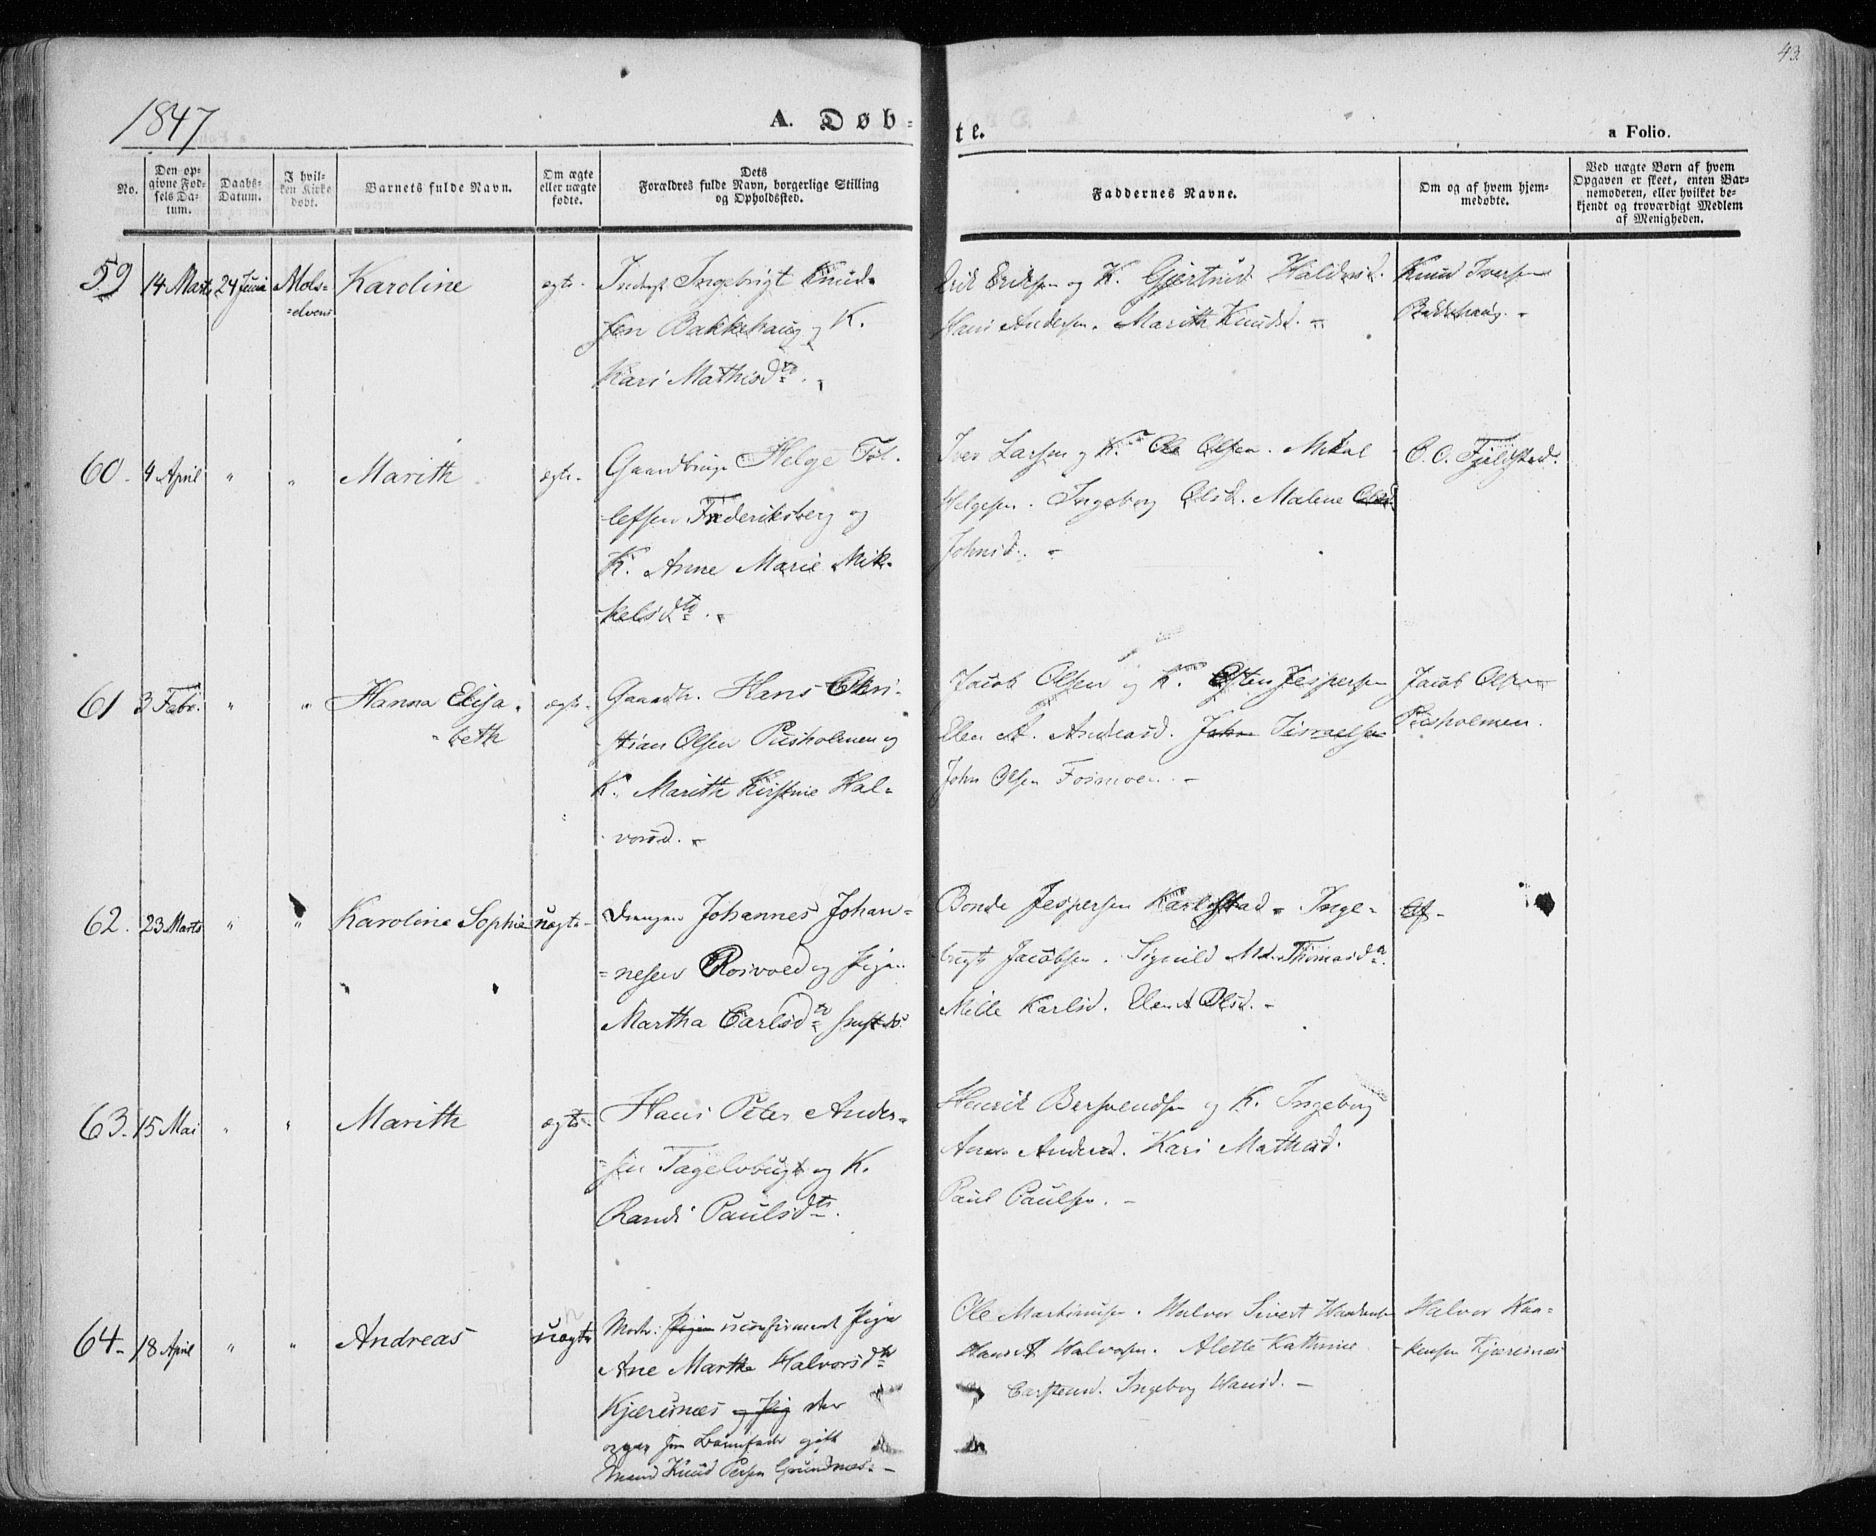 43.
1847
A. Døb-
te.
a Folio.
No.
Den op-
givne Fød-
sels Da-
tum.
Daabs-
Datum.
I hvil-
ken Kirke
døbt.
Barnets fulde Navn.
Om ægte
eller uægte
fødte.
Dets
Forældres fulde Navn, borgerlige Stilling
og Opholdssted.
Faddernes Navne.
Om og af hvem hjem-
medøbte.
Ved uægte Børn af hvem
Opgaven er skeet, enten Bar-
nemoderen, eller hvilket be-
kjendt og troværdigt Medlem
af Menigheden.
59 14 Marts 24 Juni Mols-
=elven
Karoline
ægte.
Inderst Ingebrigt Knud-
sen Bakkehaug og K.
Kari Mathisdtr.
Erik Eriksen og K. Gjertrud Haldorsd.
Hans Andersen. Marith Knudsd. -
Knud Iversen
Bakkehaug. -
60. 4 April " "
Marith
ægte.
Gaardbruger Helge Tol-
lefsen Frederiksberg og
K. Anne Marie Mik-
kelsdtr. -
Iver Larsen og K. Ole Olsen. Mikal
Helgesen. Ingeborg Olsd. Malene Olsd
Johnsd. -
O. O. Fjeldstad.
61 3 Febr. " "
Hanna Elisa-
beth
ægte.
Gaardbr. Hans Chri-
stian Olsen Rusholmen og
K. Marith Kirstine Hal-
vorsd. -
Jacob Olsen og K. Esten Jespersen
Elen A. Andreasd. John Israelsen
John Olsen Fosmoen. -
Jacob Olsen
Rusholmen.
62. 23 Marts " "
Karoline Sophie
uægte-
Drengen Johannes Johan-
=nesen Rosvold og Pigen
Martha Carlsdtr
Bonde Jespersen Karlstad. Inge-
brigt Jacobsen. Signild Md. Thomasdtr.
Mille Karlsd. Elen A Olsd. -
63. 15 Mai " "
Marith
ægte.
Hans Peter Ander-
=sen Tagelvbugt og K.
Randi Paulsdtr.
Henrik Bersvendsen og K. Ingeborg
Anne Andersd. Kari Mathisd.
Paul Paulsen. -
64- 18 April " "
Andreas
uægte
Moder: Pigen uconfirmert Pige
Ane Marthe Halvorsdtr
Kjæresnæs og Pig der
opgav som Barnefader gift
Mand Knud Persen Grundnæs. -
Ole Martinusen. Halvor Sivert
Hans A Halvorsen. Alette Kathrine
Carstensd. Ingeborg Hansd. -
Halvor Haa-
kensen Kjæresnæs